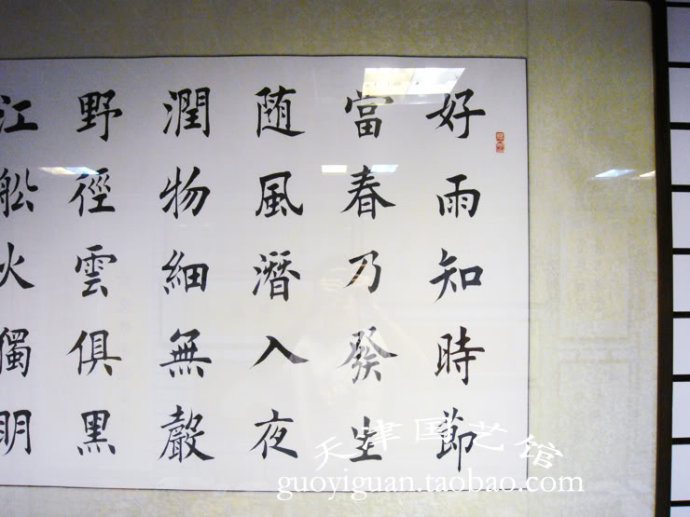 好雨知時節
當春乃發生
随風潛入夜
潤物細無聲
野徑雲俱黑
江船火獨明
天津国艺馆
guoyiguan.taobao.com